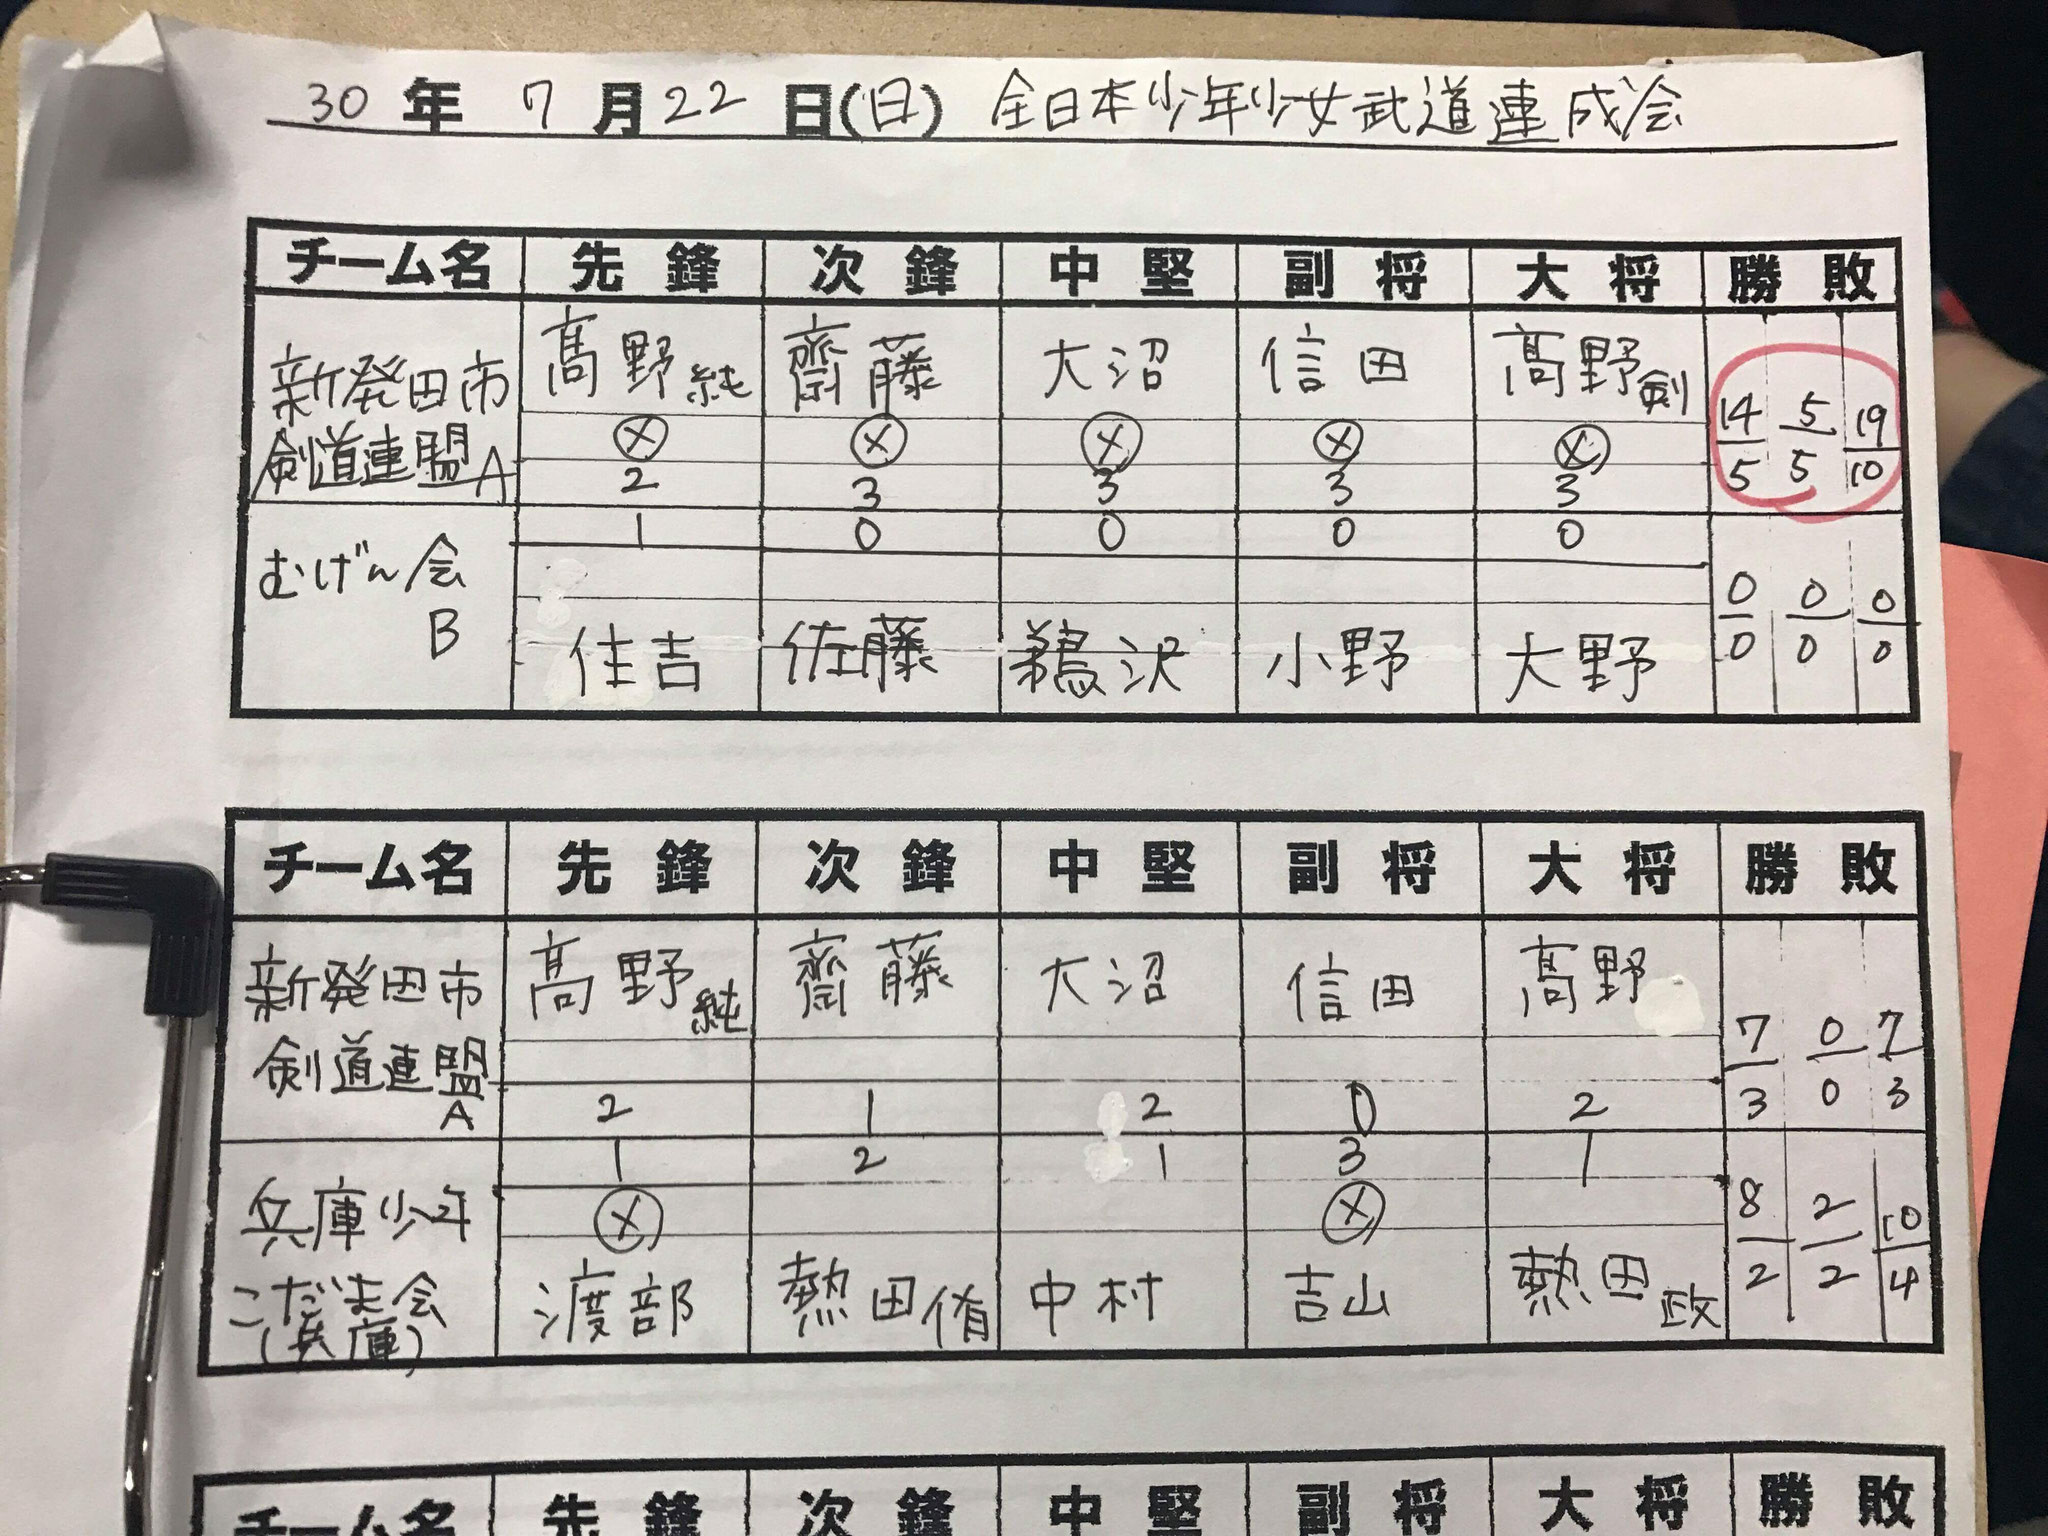 30年 7月22日(日) 全日本少年少女武道連成会
チーム名 先鋒 次鋒 中堅 副将 大将 勝敗
新発田市 髙野純 齋藤 大沼 信田 髙野剣
剣道連盟A ⓧ ⓧ ⓧ ⓧ ⓧ 14 5 19
2 3 3 3 3 5 5 10
1 0 0 0 0
むげん会 0 0 0
B 住吉 佐藤 鵜沢 小野 大野 0 0 0
チーム名 先鋒 次鋒 中堅 副将 大将 勝敗
新発田市 髙野純 齋藤 大沼 信田 髙野
剣道連盟 7 0 7
A 2 1 2 0 2 3 0 3
1 2 1 3 1
兵庫少年 ⓧ ⓧ 8 2 10
こだま会 渡部 熱田侑 中村 吉山 熱田政 2 2 4
(兵庫)
チーム名 先鋒 次鋒 中堅 副将 大将 勝敗